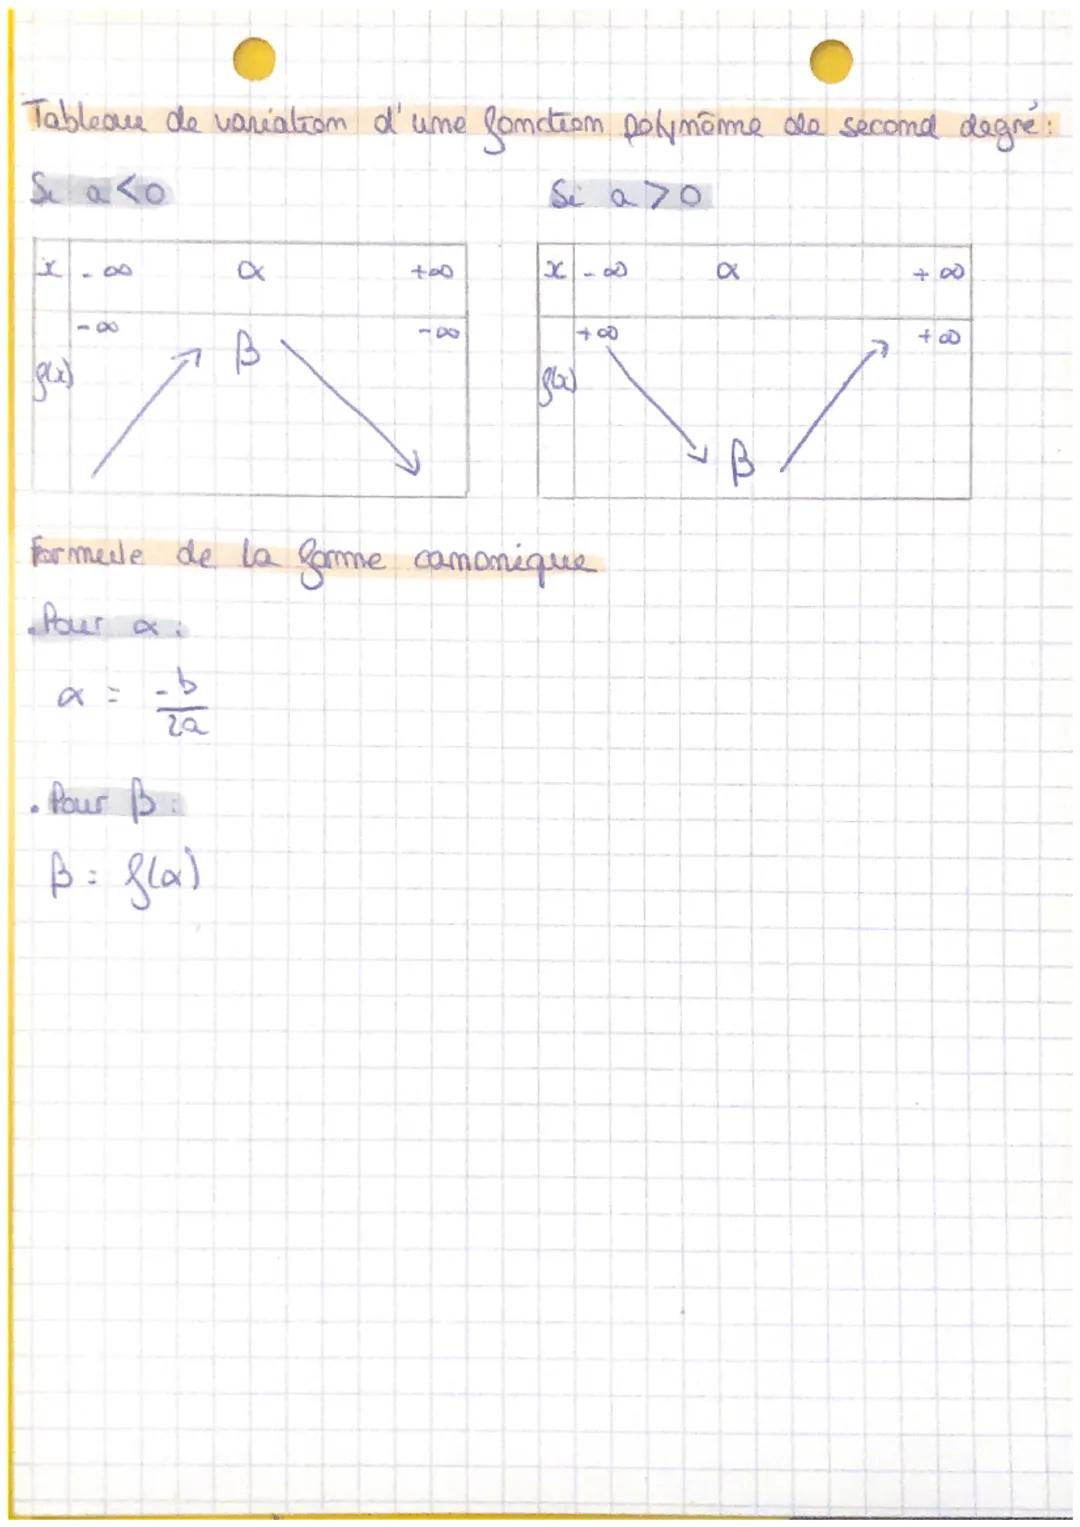 Tableau de variation d'une fonction polynôme de second degré :
Si a < 0
Si a > 0
x -∞ α +∞
x -∞ α +∞
-∞ β -∞
+∞ +∞
f(x)
f(x)
β
Formule de la forme canonique
. Pour α :
α = -b/2a
. Pour β :
β = f(α)